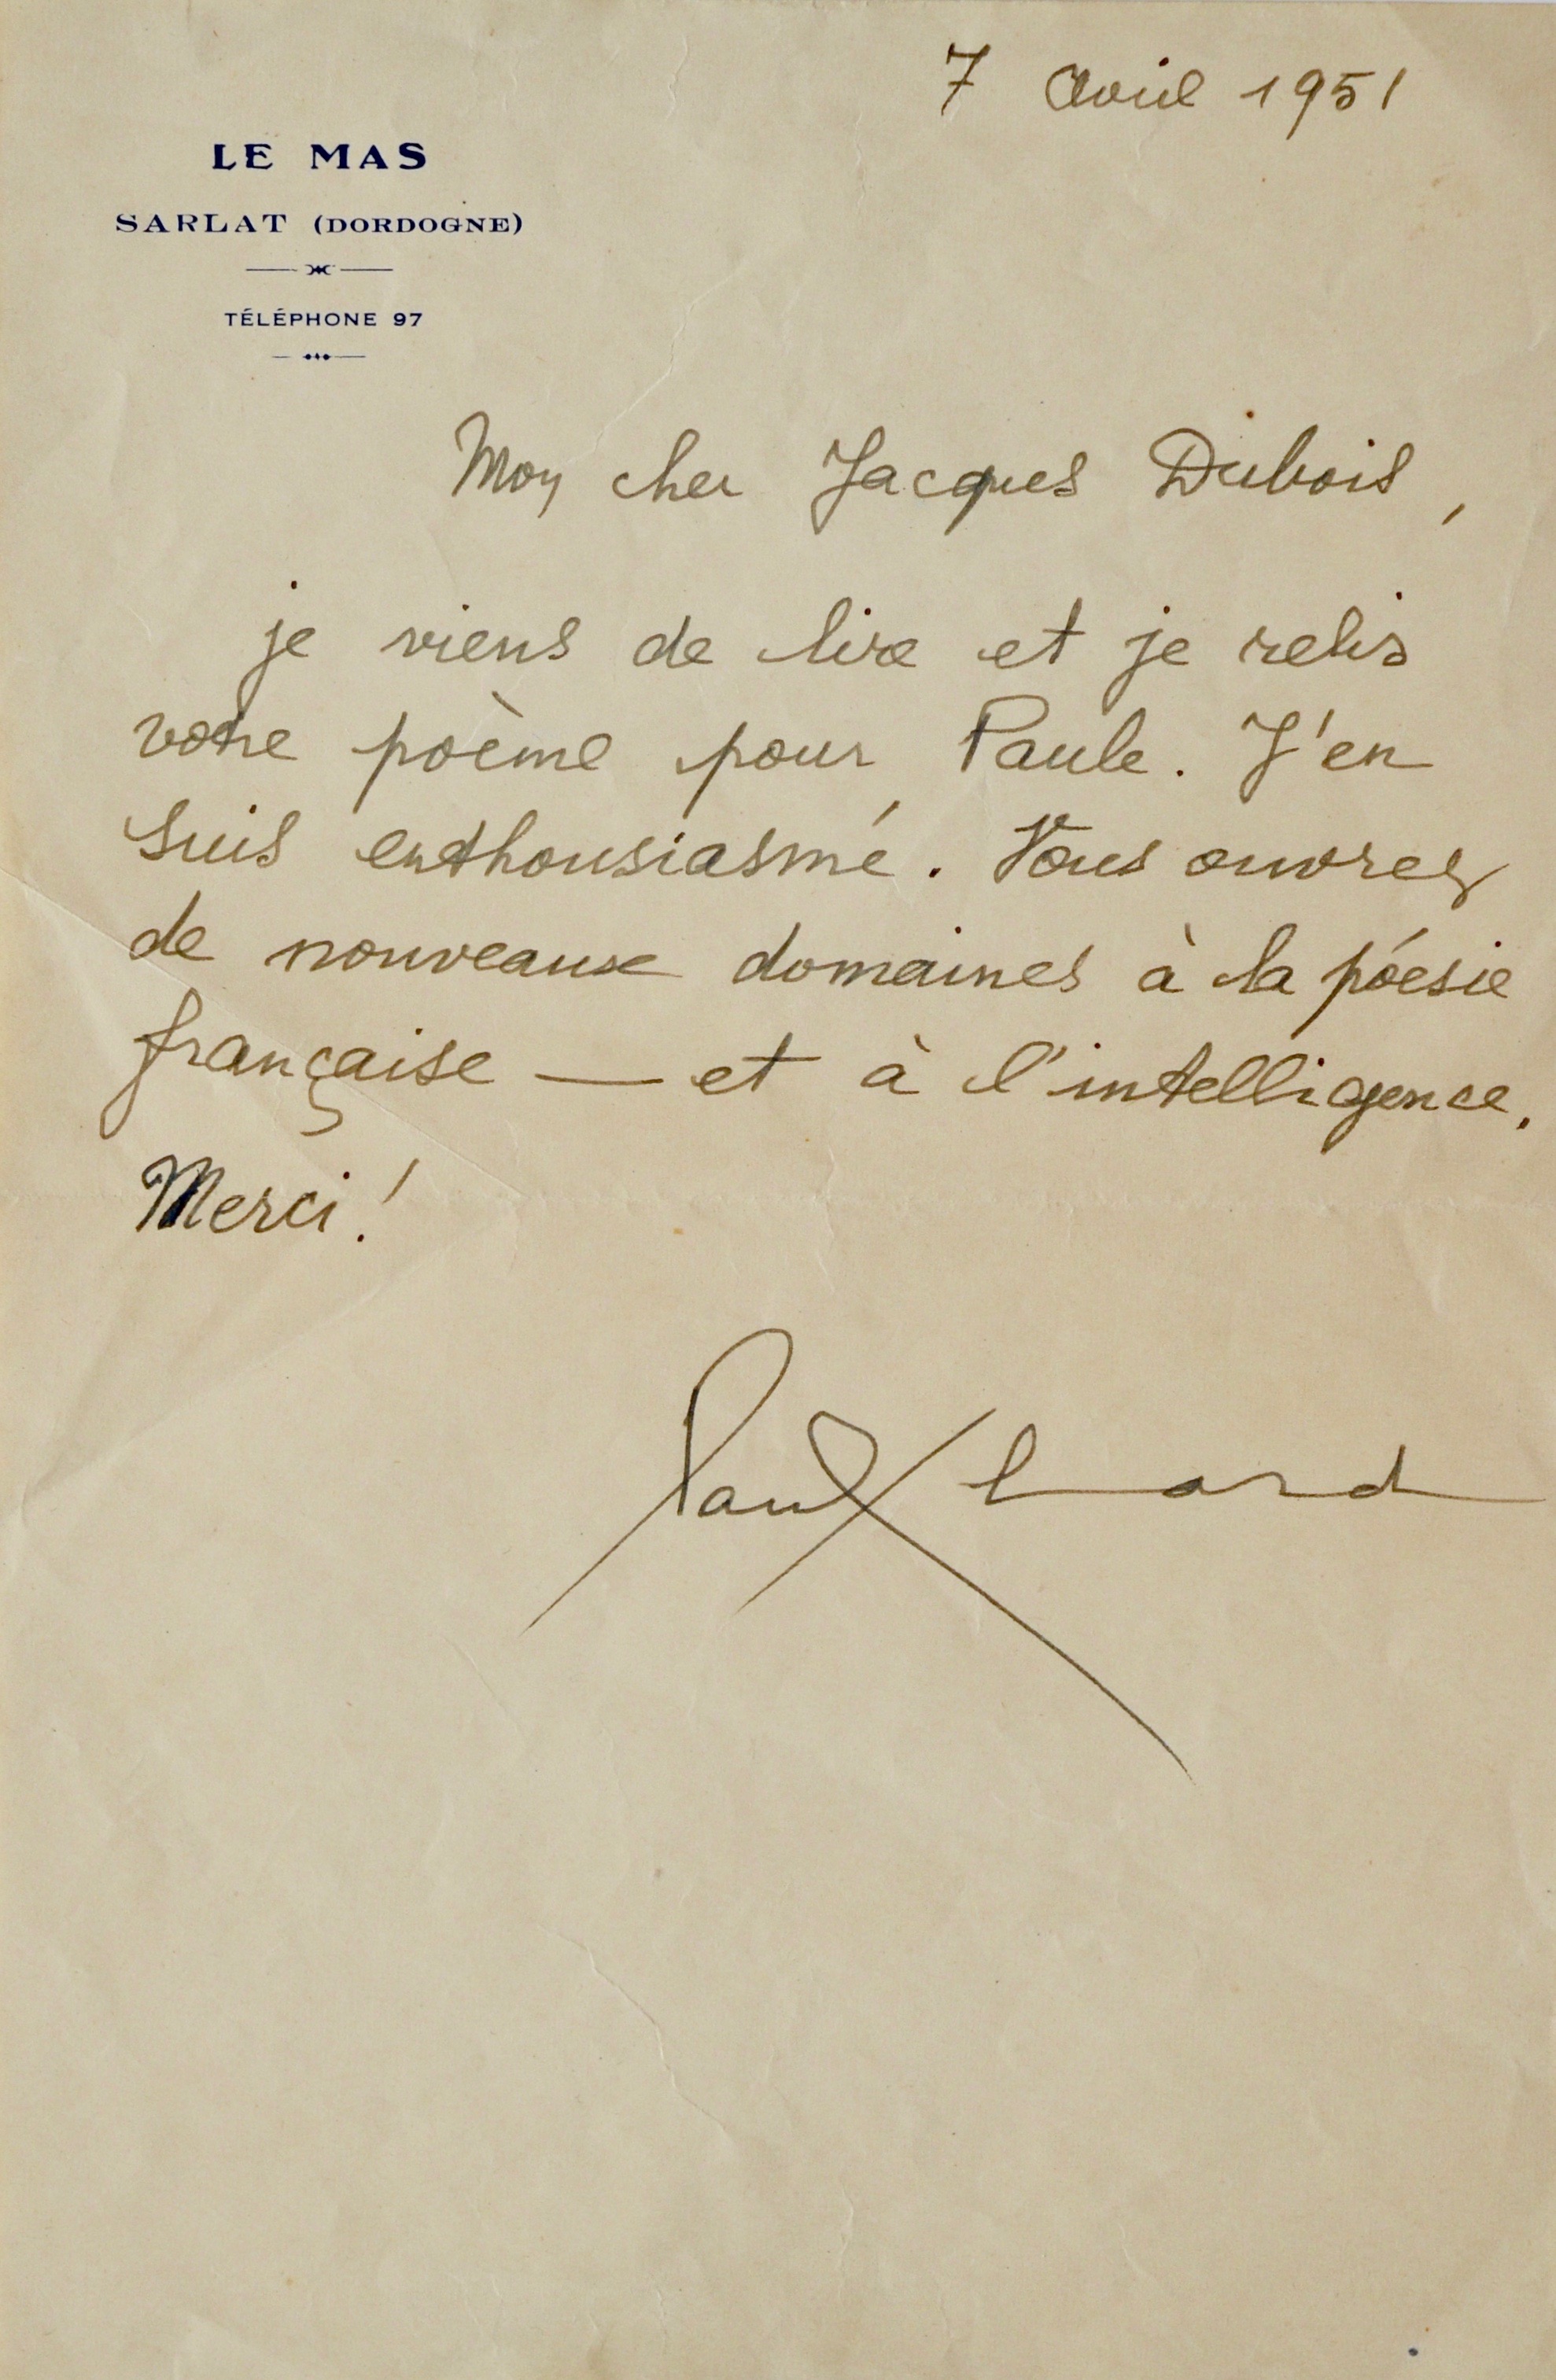 7 Avril 1951
LE MAS
SARLAT (DORDOGNE)
TÉLÉPHONE 97
Mon cher Jacques Dubois,
je viens de lire et je relis
votre poème pour Paule. J'en
suis enthousiasmé. Vous ouvrez
de nouveaux domaines à la póesie
française — et à l'intelligence.
Merci!
Paul Eluard